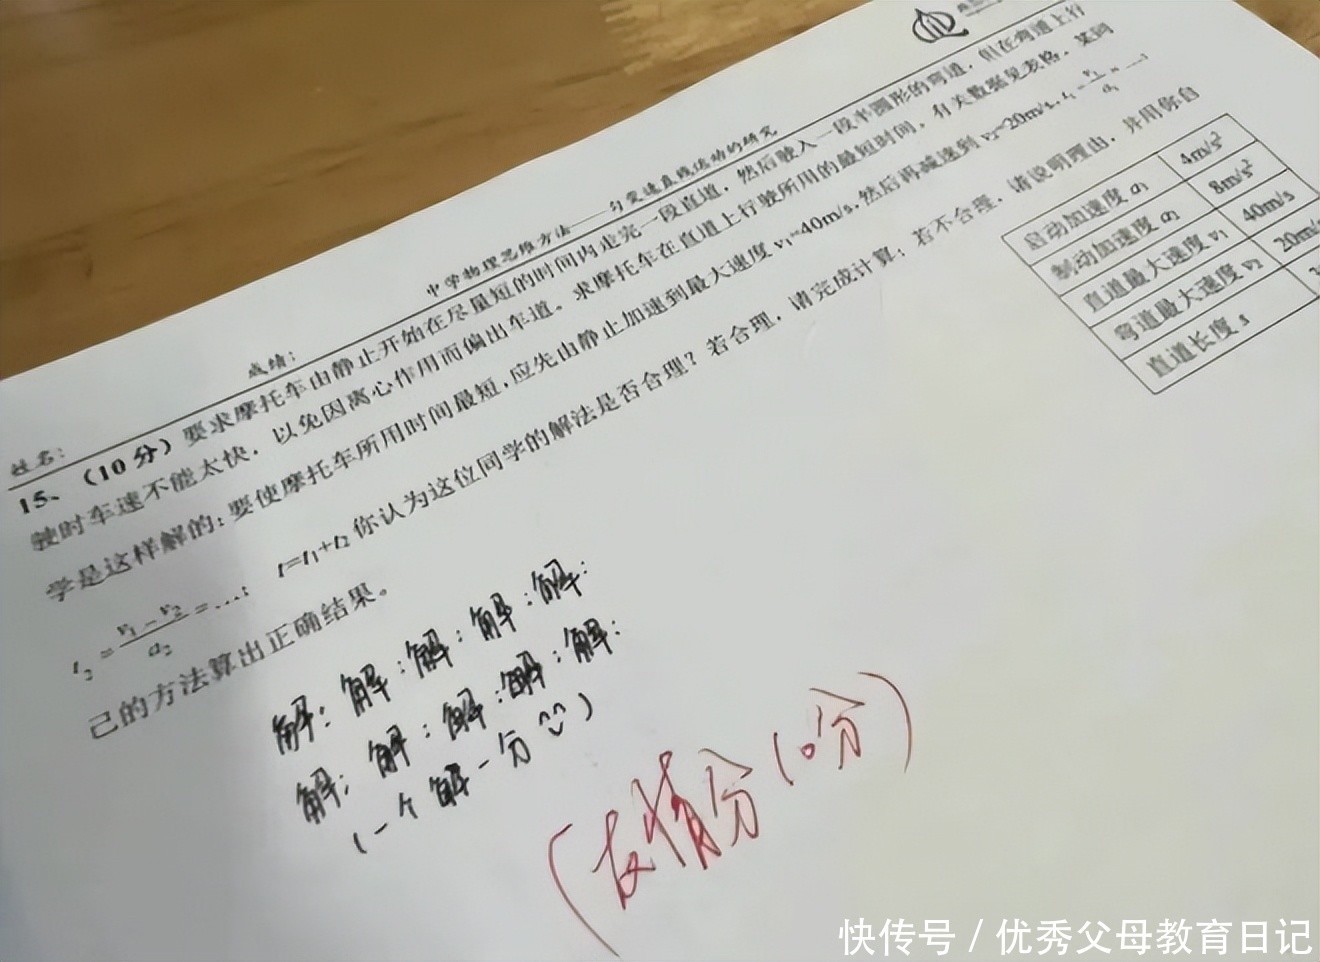 中学物理思维方法——匀变速直线运动的研究
姓名： 成绩：
15、（10分）要求摩托车由静止开始在尽量短的时间内走完一段直道，然后驶入一段半圆形的弯道，但在弯道上行
驶时车速不能太快，以免因离心作用而偏出车道。求摩托车在直道上行驶所用的最短时间，有关数据见表格。某同
学是这样解的：要使摩托车所用时间最短，应先由静止加速到最大速度 v₁=40m/s，然后再减速到 v₂=20m/s，t₁=v₁/a₁=…；
t₂=(v₁-v₂)/a₂=…； t=t₁+t₂ 你认为这位同学的解法是否合理？若合理，请完成计算；若不合理，请说明理由，并用你自
己的方法算出正确结果。
启动加速度 a₁ 4m/s²
制动加速度 a₂ 8m/s²
直道最大速度 v₁ 40m/s
弯道最大速度 v₂ 20m/s
直道长度 s
解：解：解：解：解：
解：解：解：解：解：
（一个解一分）
（友情分10分）
快传号 / 优秀父母教育日记